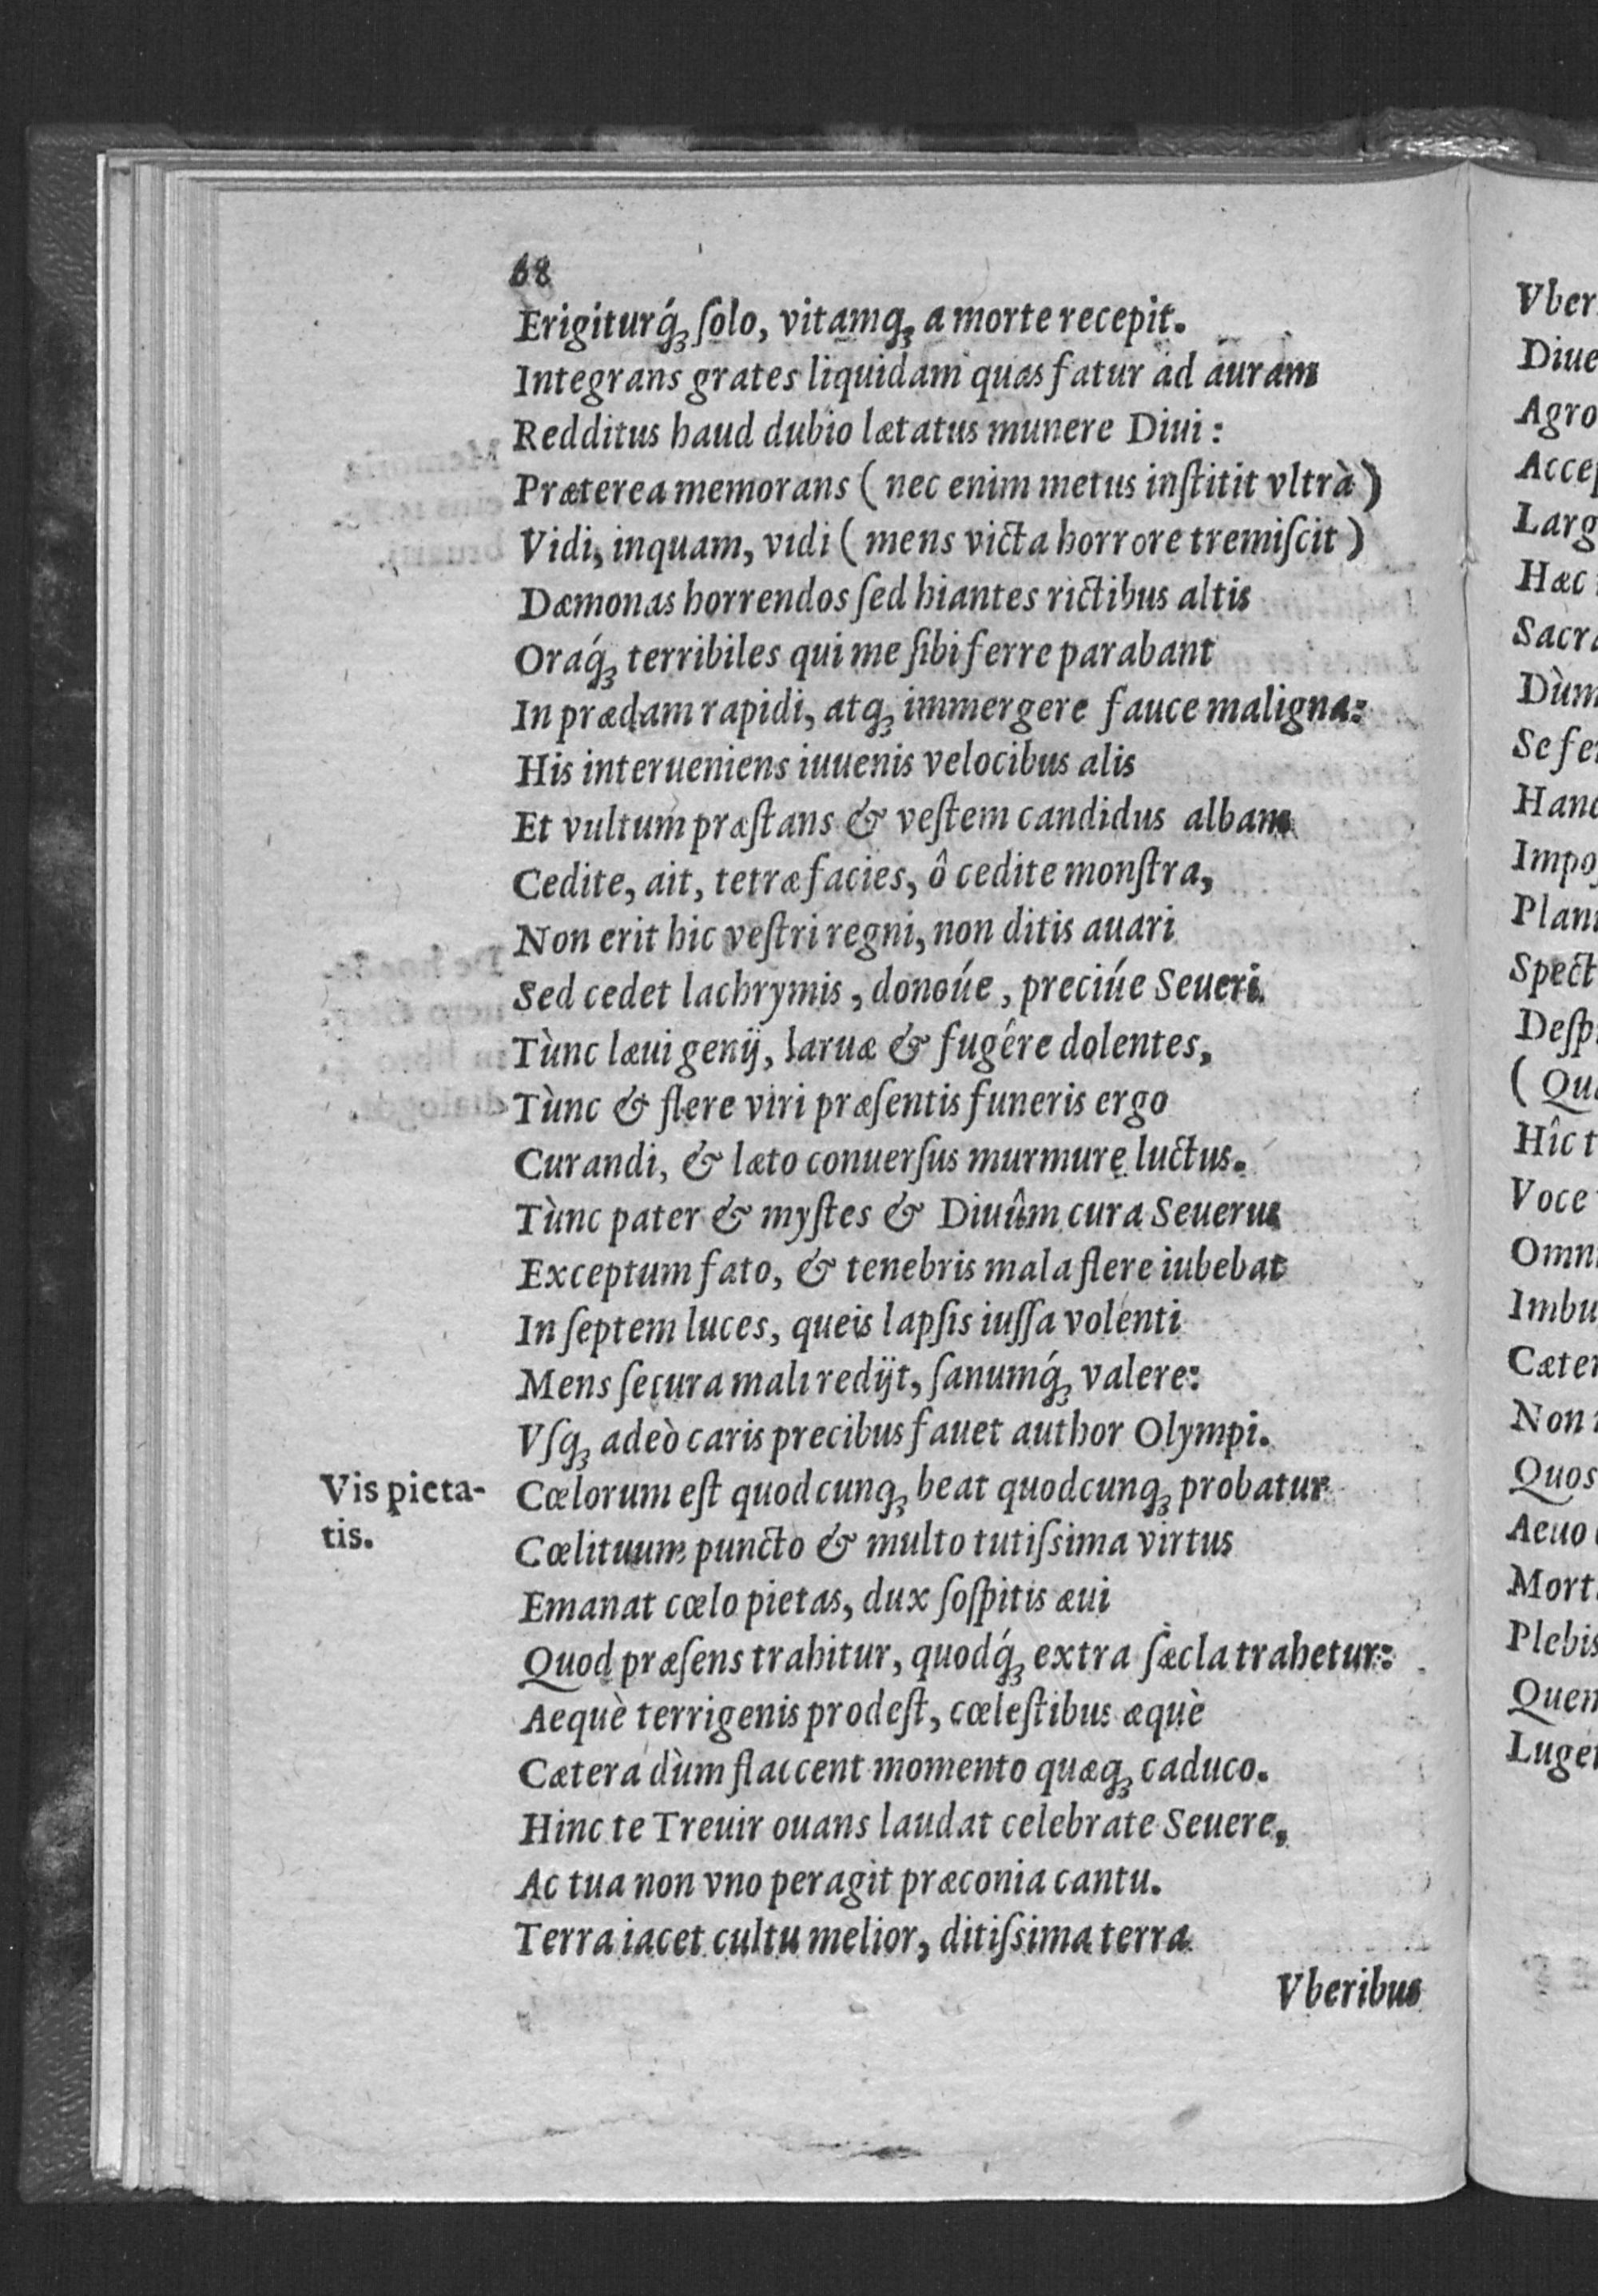 68
Erigiturq́ꝫ ſolo, vitamqꝫ a morte recepit.
Integrans grates liquidam quas fatur ad auram
Redditus haud dubio lætatus munere Diui:
Præterea memorans ( nec enim metus inſtitit vltrà )
Vidi, inquam, vidi ( mens victa horrore tremiſcit )
Dæmonas horrendos ſed hiantes rictibus altis
Oraq́ꝫ terribiles qui me ſibi ferre parabant
In prædam rapidi, atqꝫ immergere fauce maligna:
His interueniens iuuenis velocibus alis
Et vultum præſtans & veſtem candidus albam
Cedite, ait, tetræ facies, ô cedite monſtra,
Non erit hic veſtri regni, non ditis auari
Sed cedet lachrymis, donoúe, preciúe Seueri.
Tùnc læui genij, laruæ & fugêre dolentes,
Tùnc & flere viri præſentis funeris ergo
Curandi, & læto conuerſus murmure luctus.
Tùnc pater & myſtes & Diuûm cura Seuerus
Exceptum fato, & tenebris mala flere iubebat
In ſeptem luces, queis lapſis iuſſa volenti
Mens ſecura mali redijt, ſanumq́ꝫ valere:
Vſqꝫ adeò caris precibus fauet author Olympi.
Vis pieta-
tis.
Cœlorum eſt quodcunqꝫ beat quodcunqꝫ probatur
Cœlituum puncto & multo tutiſsima virtus
Emanat cœlo pietas, dux ſoſpitis æui
Quod præſens trahitur, quodq́ꝫ extra ſæcla trahetur:
Aequè terrigenis prodeſt, cœleſtibus æquè
Cætera dùm flaccent momento quæqꝫ caduco.
Hinc te Treuir ouans laudat celebrate Seuere,
Ac tua non vno peragit præconia cantu.
Terra iacet cultu melior, ditiſsima terra
Vberibus
Vber
Diue
Agro
Accep
Larg
Hæc
Sacra
Dùm
Se fer
Hanc
Impo
Plan
Spect
Deſp
( Qua
Hîc t
Voce
Omn
Imbu
Cæter
Non
Quos
Aeuo
Mort
Plebis
Quem
Luget